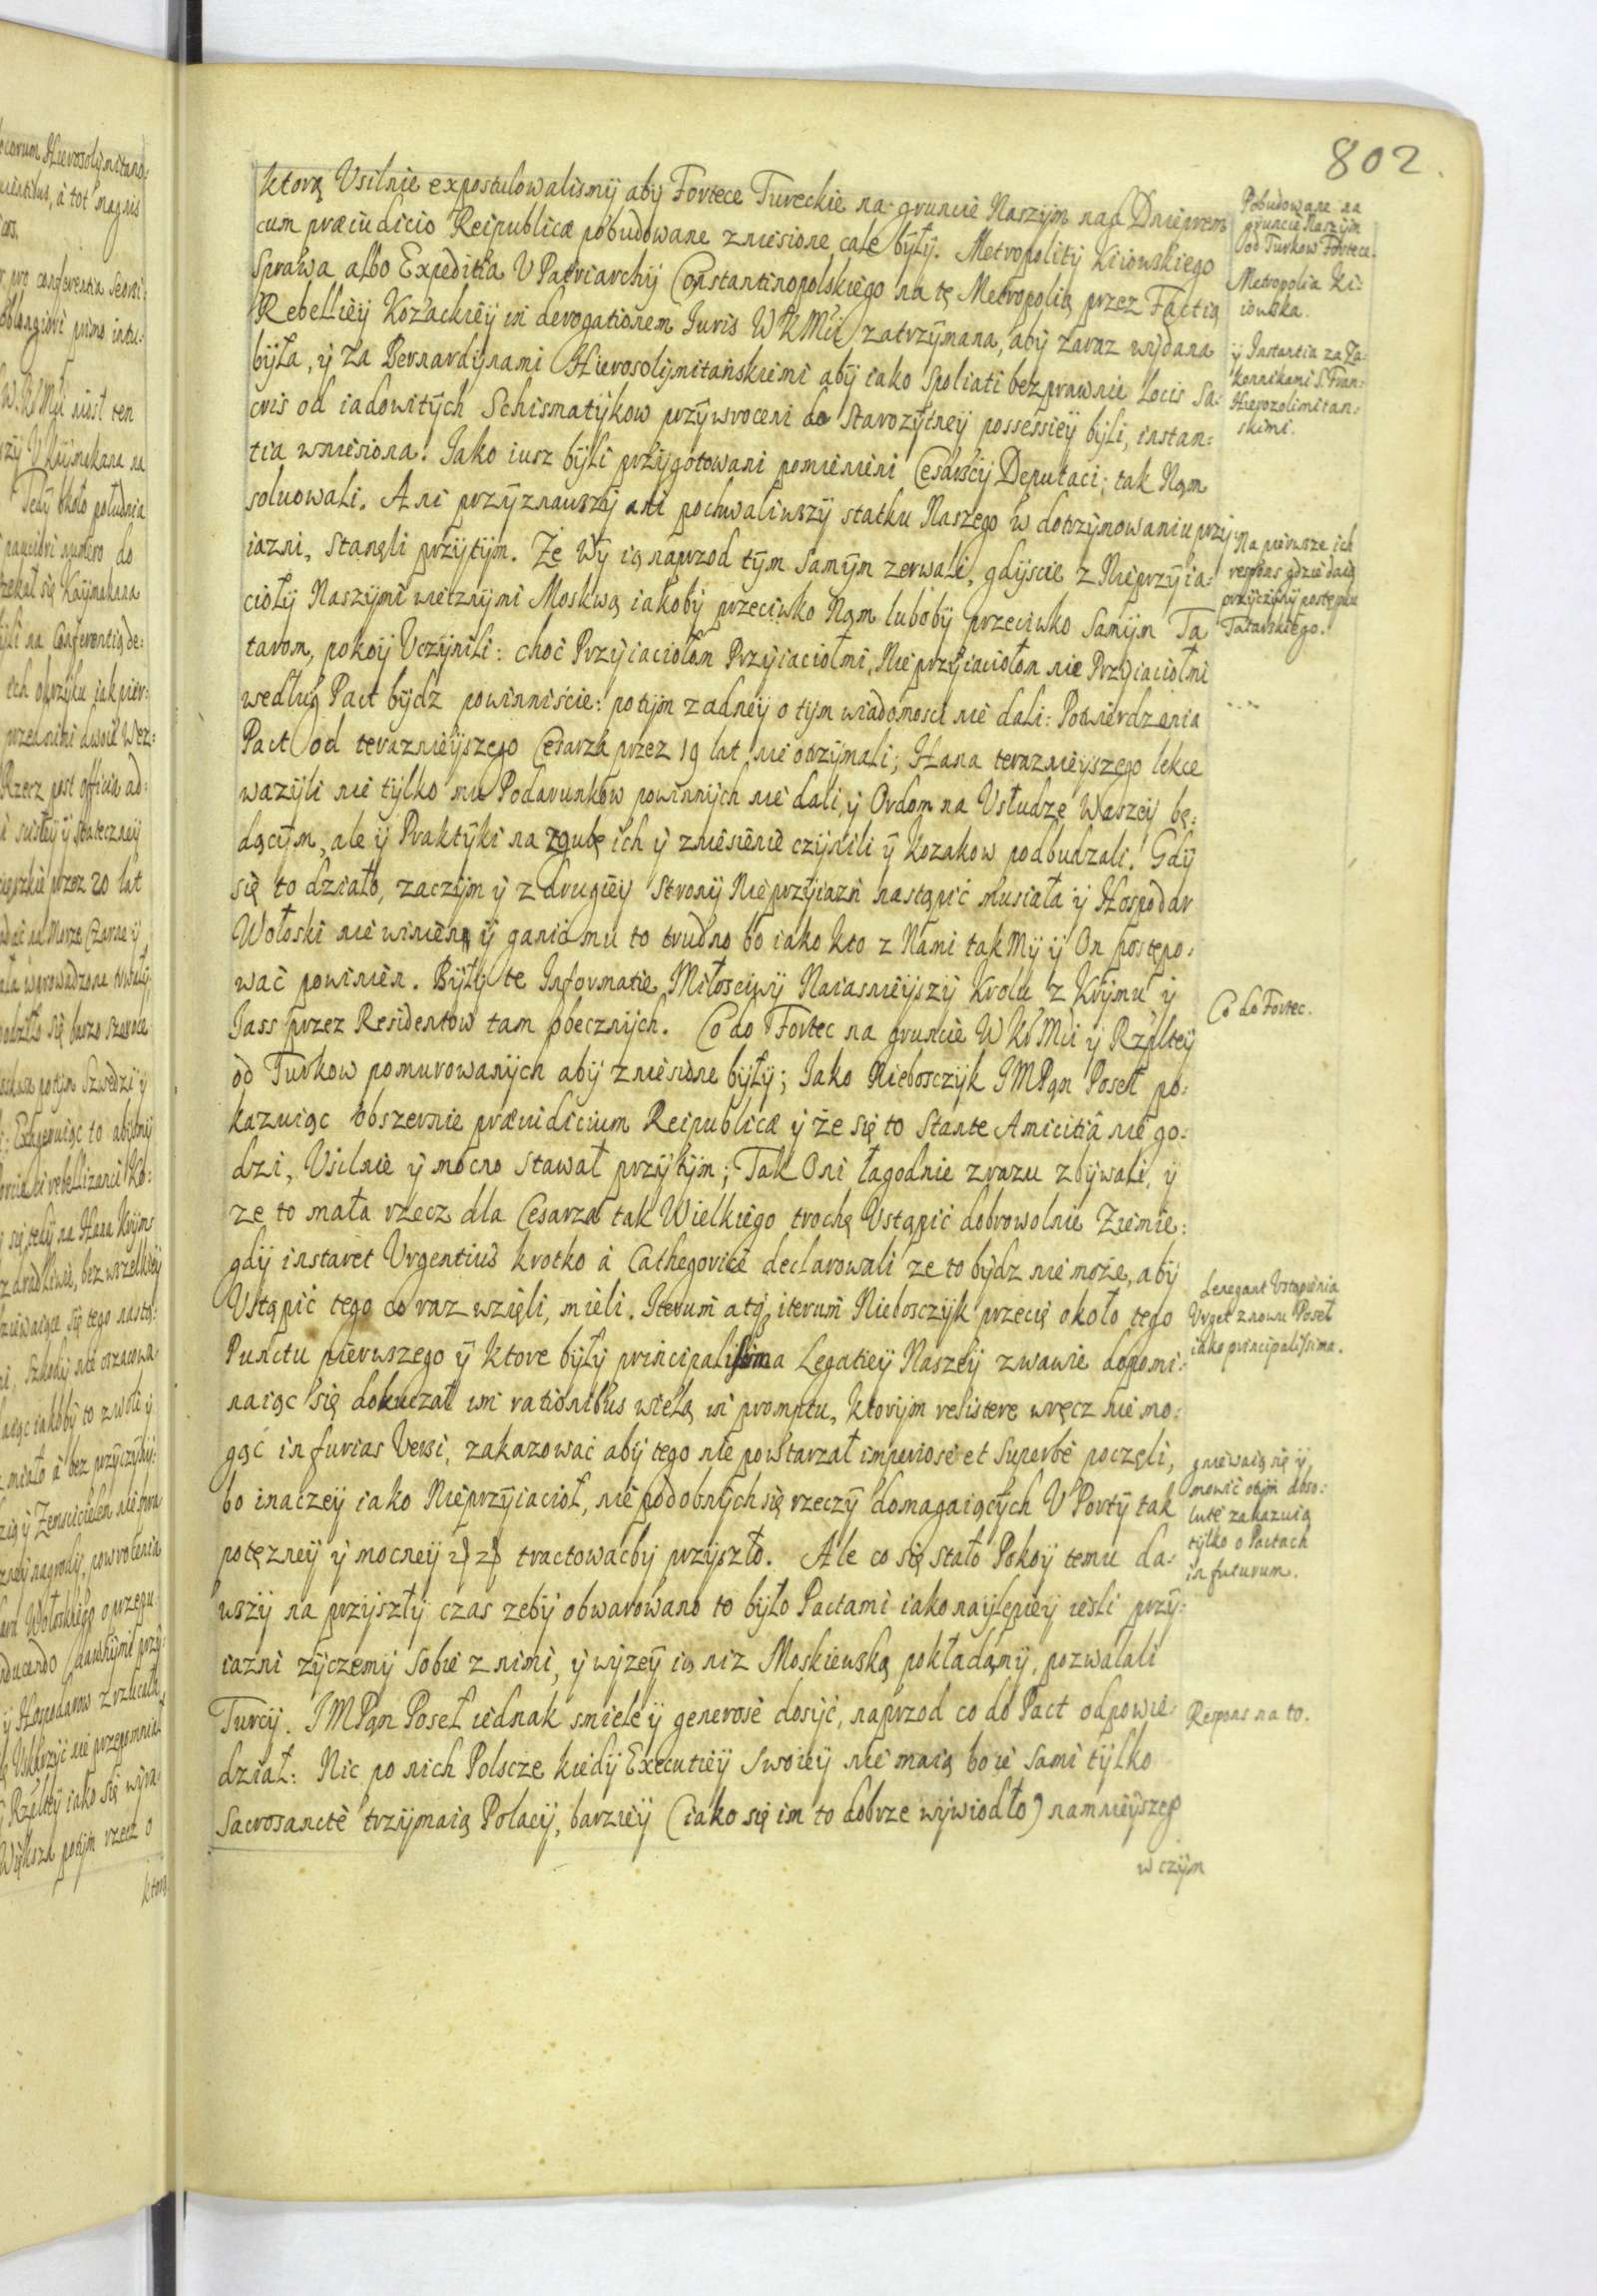 802.
ktorą Usilnie expostulowalismy aby Fortece Tureckie na gruncie Naszym nad Dnieprem
cum præiudicio Reipublicæ pobudowane zniesione cale były. Metropolity Kiiowskiego
Sprawa albo Expeditia U Patriarchy Constantinopolskiego na tę Metropolią przez Factią
Rebelliey Kozackiey in derogationem Iuris WKMci zatrzymana, aby zaraz wydana
była, y za Bernardynami Hierosolymitańskiemi aby iako spoliati bezprawnie Locis Sa:
cris od iadowitych Schismatykow przywroceni do Starozytney possessiey byli, instan:
tia wniesiona. Iako iusz byli przygotowani pomienieni Cesarscy Deputaci; tak Nam
soluowali. Ani przyznawszy ani pochwaliwszy statku Naszego w dotrzymowaniu przy:
iazni, stanęli przytym. Że Wy ią naprzod tym samym zerwali, gdyscie z Nieprzyia:
cioły Naszymi wiecznymi Moskwą iakoby przeciwko Nam luboby przeciwko Samym Ta
tarom, pokoy Uczynili: choć Przyiaciołom Przyiaciołmi, Nieprzyiaciołom nie Przyiaciołmi
według Pact bydz powinniście: potym zadney o tym wiadomosci nie dali: Potwierdzenia
Pact od teraznieyszego Cesarza przez 19 lat nie otrzymali; Hana teraznieyszego lekce
wazyli nie tylko mu Podarunkow powinnych nie dali, y Ordom na Usłudze Waszey bę:
dącym, ale y Praktyki na zgubę ich y zniesienie czynili y Kozakow podbudzali. Gdy
się to działo, zaczym y z drugiey Strony Nieprzyiazń nastąpić musiała y Hospodar
Wołoski nie winien y ganić mu to trudno bo iako kto z Nami tak My y On postępo:
wać powinien. Były te Informatie Miłosciwy Naiasnieyszy Krolu z Krymu y
Iass przez Residentow tam obecznych. Co do Fortec na gruncie WKMci y Rzpltey
od Turkow pomurowanych aby zniesione były; Iako Nieboszczyk IMPan Poseł po:
kazuiąc obszernie præiudicium Reipublicæ y że się to Stante Amicitiâ nie go:
dzi, Usilnie y mocno stawał przytym; Tak Oni łagodnie zrazu zbywali, y
ze to mała rzecz dla Cesarza tak Wielkiego trochę Ustąpić dobrowolnie Ziemie:
gdy instaret Urgentius krotko à Cathegoricè declarowali ze to bydz nie może, aby
Ustąpić tego co raz wzięli, mieli. Iterum atq iterum Nieboszczyk przecię około tego
Punctu pierwszego y ktore były principalissima Legatiey Naszey zwawie dopomi:
naiąc się dokuczał im rationibus wielą in promptu, ktorym resistere wręcz nie mo:
gąć in furias Versi, zakazować aby tego nie powtarzał imperiosè et Superbè poczęli,
bo inaczey iako Nieprzyiacioł, nie podobnych się rzeczy domagaiących U Porty tak
potęzney y mocney z tractowacby przyszło. Ale co się stało Pokoy temu da:
wszy na przyszły czas zeby obwarowano to było Pactami iako naylepiey iesli przy:
iazni zyczemy sobie z nimi, y wyzey ią niz Moskiewską pokładamy, pozwalali
Turcy. IMPan Poseł iednak smiele y generosè dosyć, naprzod co do Pact odpowie:
dział: Nic po nich Polscze kiedy Executiey Swoiey nie maią bo ie sami tylko
Sacrosanctè trzymaią Polacy, barziey (iako się im to dobrze wywiodło) namnieyszego
w czym
Pobudowane na
gruncie Naszym
od Turkow Fortece.
Metropolia Ki:
iowska.
y Instantia za Za:
konnikami S. Fran:
Hierozolimitan:
skimi.
Na pierwsze ich
respons gdzie daią
przyczyny postępku
Tatarskiego.
Co do Fortec.
Denegant Ustąpienia
Urget znowu Poseł
iako principalissima.
gniewaią się y
mowić otym abso:
lutè zakazuią
tylko o Pactach
in futurum.
Respons na to.